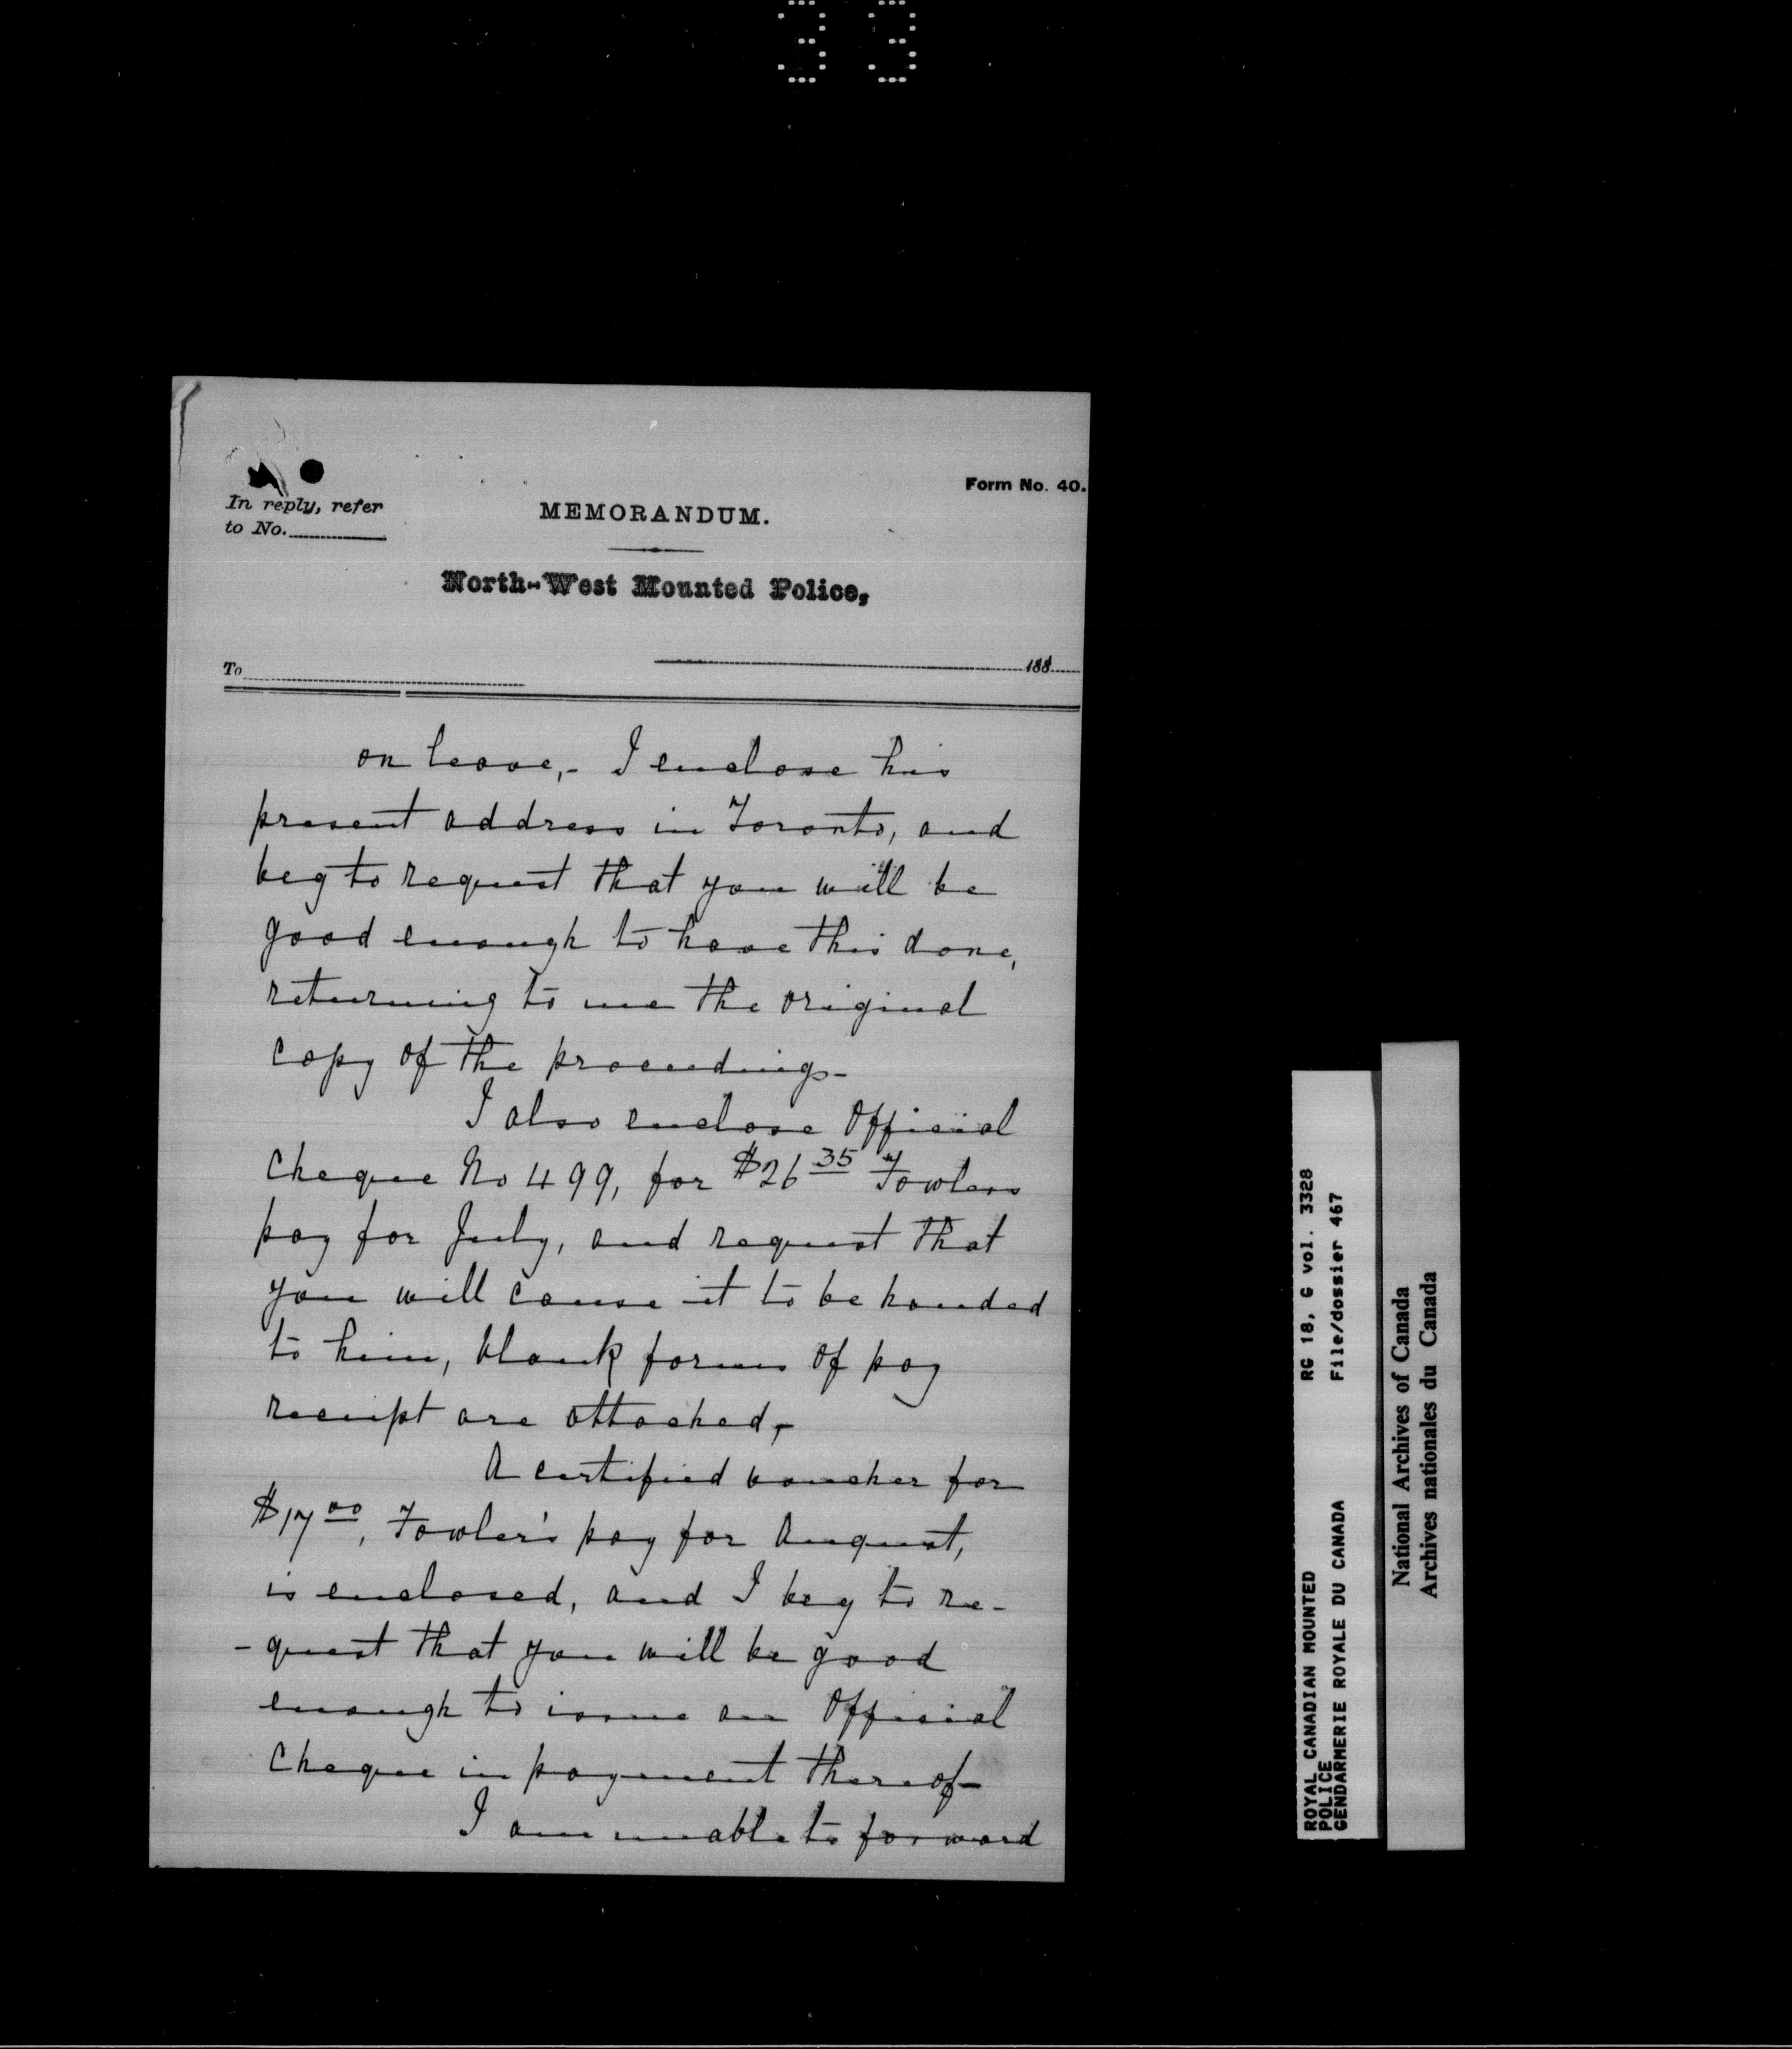 33
Form No. 40.
In reply, refer
to No.
MEMORANDUM.
North-West Mounted Police,
To
188
on leave,- I enclose his
present address in Toronto, and
beg to request that you will be
good enough to have this done,
returning to me the original
copy of the proceedings-
I also enclose Official
Cheque No 499, for $26 35 Fowlers
pay for July, and request that
you will cause it to be handed
to him, blank forms of pay
receipt are attached,-
A certified voucher for
$17 00, Fowler's pay for August,
is enclosed, and I beg to re-
-quest that you will be good
enough to issue an Official
Cheque in payment thereof-
I am unable to forward
ROYAL CANADIAN MOUNTED RG 18, G vol. 3328
POLICE File/dossier 467
GENDARMERIE ROYALE DU CANADA
National Archives of Canada
Archives nationales du Canada